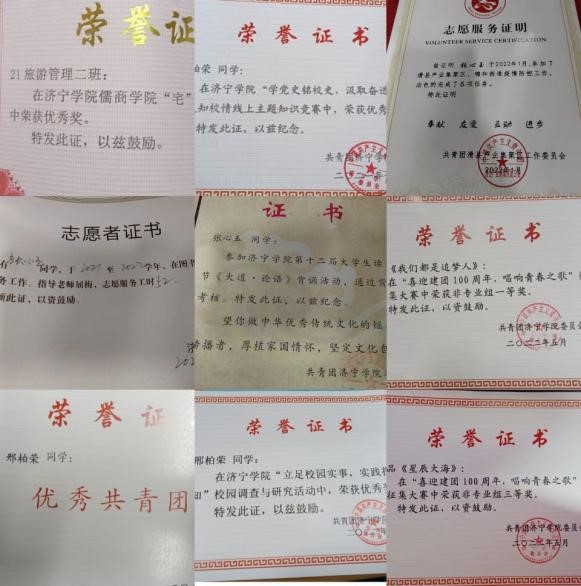 荣誉证
21旅游管理二班：
在济宁学院儒商学院“宅”
中荣获优秀奖。
特发此证，以兹鼓励。
荣誉证书
柏荣 同学：
在济宁学院“学党史锦校史，汲取奋进
知校情线上主题知识竞赛中，荣获优秀
特发此证，以兹纪念。
共青团济宁学院
二〇二
志愿服务证明
VOLUNTEER SERVICE CERTIFICATION
兹证明 张心玉 于2022年1月，参加了
滑县产业集聚区、锦和街道疫情防控工作，
出色的完成了各项任务。
特此证明
奉献 友爱 互助 进步
共青团滑县产业集聚区工作委员会
2022年1月
志愿者证书
同学，于2021至2022学年，在图书
务工作。指导老师屈梅，志愿服务工时
颁此证，以资鼓励。
证书
张心玉 同学：
参加济宁学院第十二届大学生读
节《大道·论语》背诵活动，通过背
考核。特发此证，以兹纪念。
望你做中华优秀传统文化的继
播者，厚植家国情怀，坚定文化自
共青团济宁学院
荣誉证书
《我们都是追梦人》：
在“喜迎建团100周年，唱响青春之歌”
集大赛中荣获非专业组一等奖。
特发此证，以资鼓励。
共青团济宁学院委员会
二〇二二年五月
荣誉证
邢柏荣 同学：
优秀共青团
荣誉证书
邢柏荣 同学：
在济宁学院“立足校园实事，实践
”校园调查与研究活动中，荣获优秀
特发此证，以兹鼓励。
共青团济宁学院
二〇二
荣誉证书
品《星辰大海》：
在“喜迎建团100周年，唱响青春之歌”
征集大赛中荣获非专业组三等奖。
特发此证，以资鼓励。
共青团济宁学院委员会
二〇二二年五月